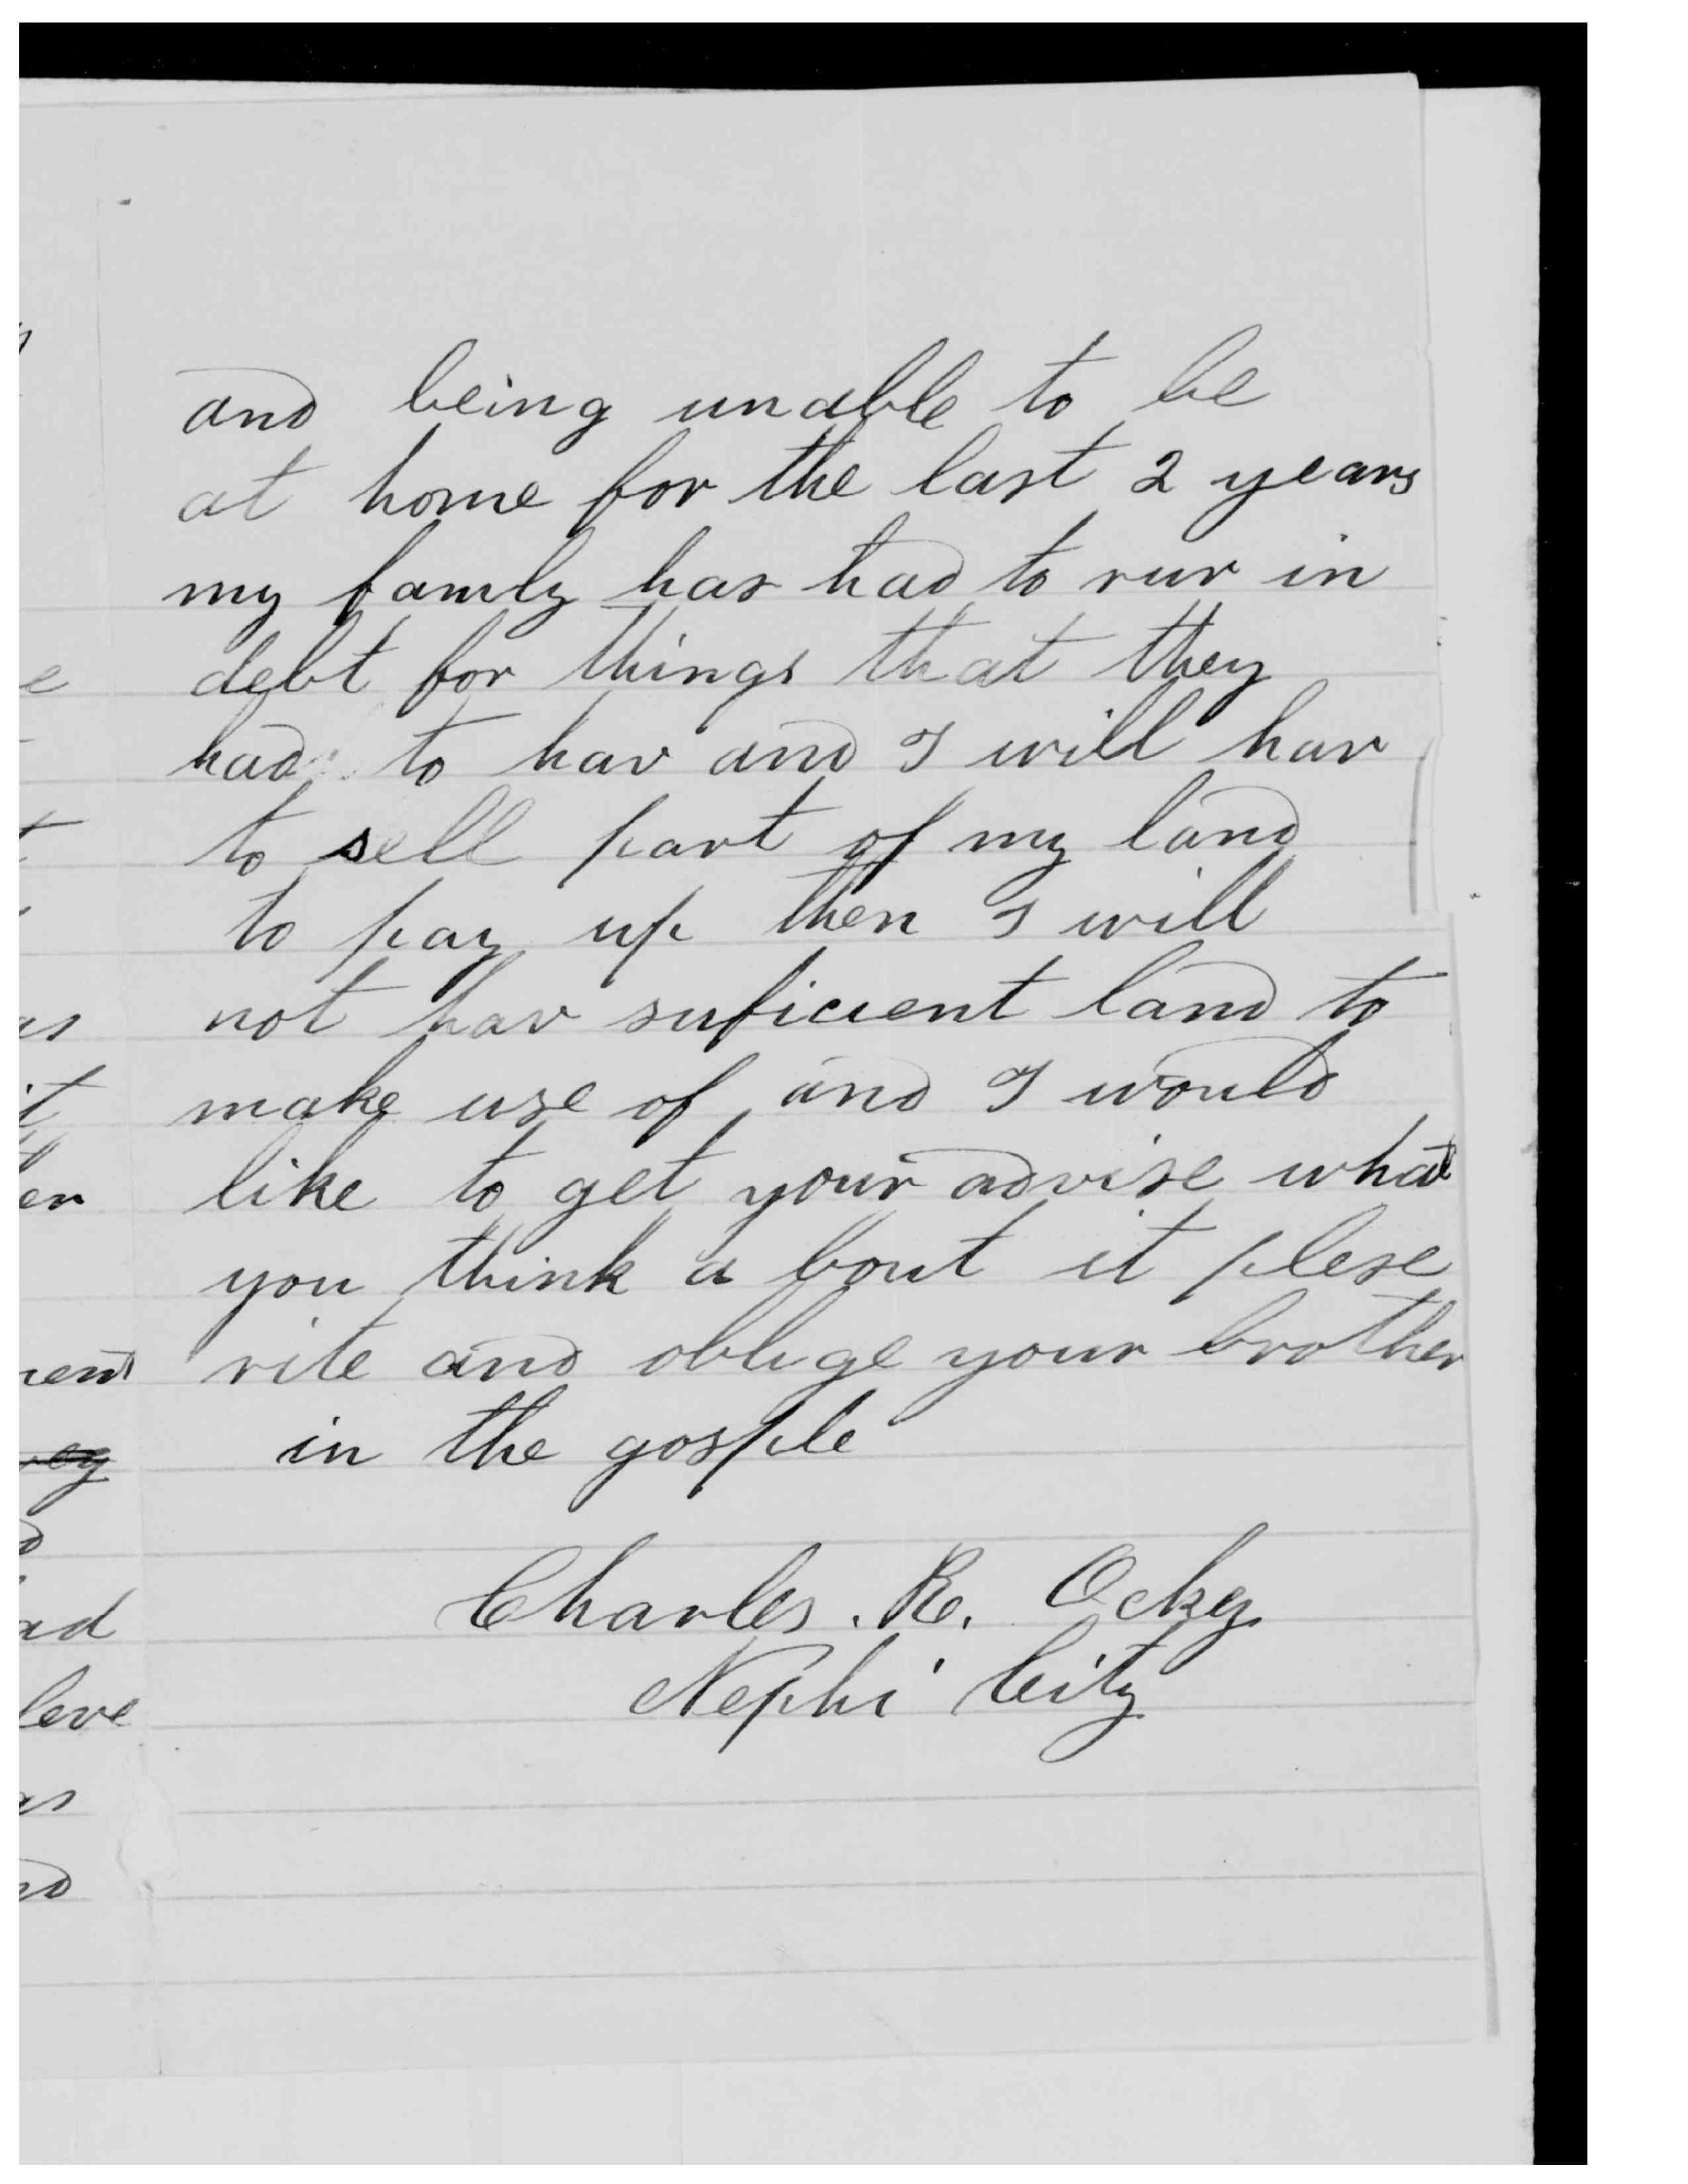 and being unable to be
at home for the last 2 years
my famly has had to run in
debt for things that they
had to hav and I will hav
to sell part of my land
to pay up then I will
not hav suficient land to
make use of and I would
like to get your advise what
you think a bout it plese
rite and oblige your brother
in the gosple
Charles. R. Ockey
Nephi City